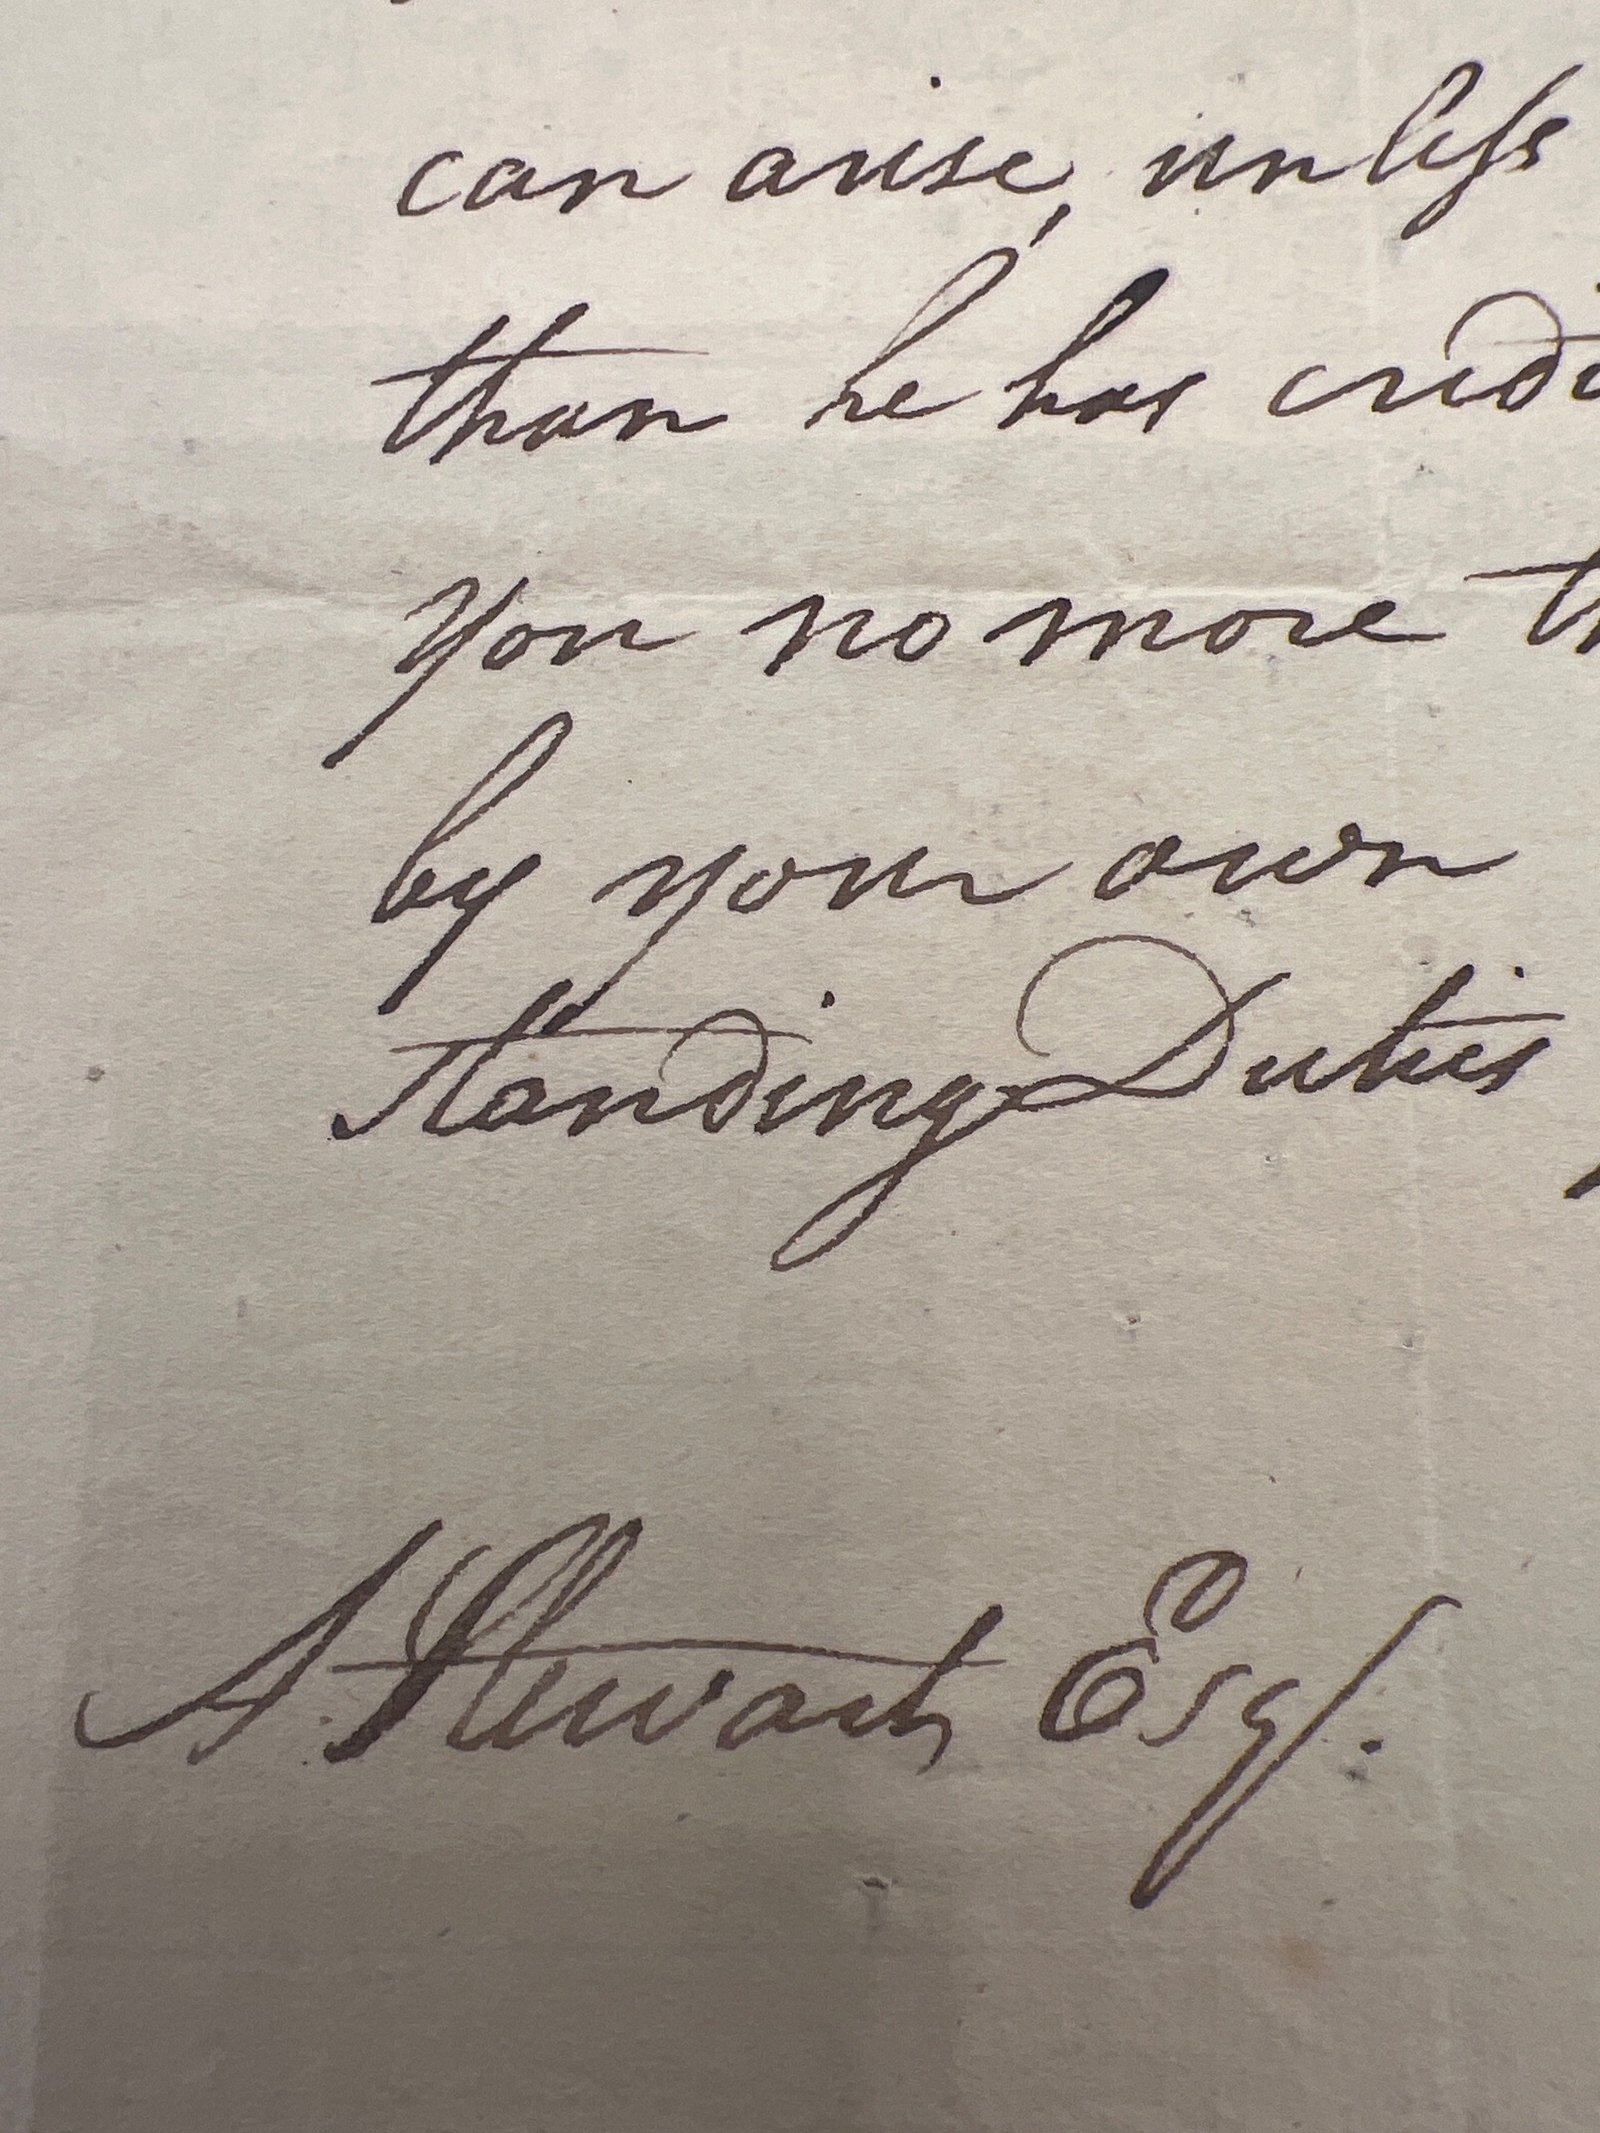 can arise, unless
than he has credi
you no more th
by your own
Standing Duties
A Stewart Esqr.